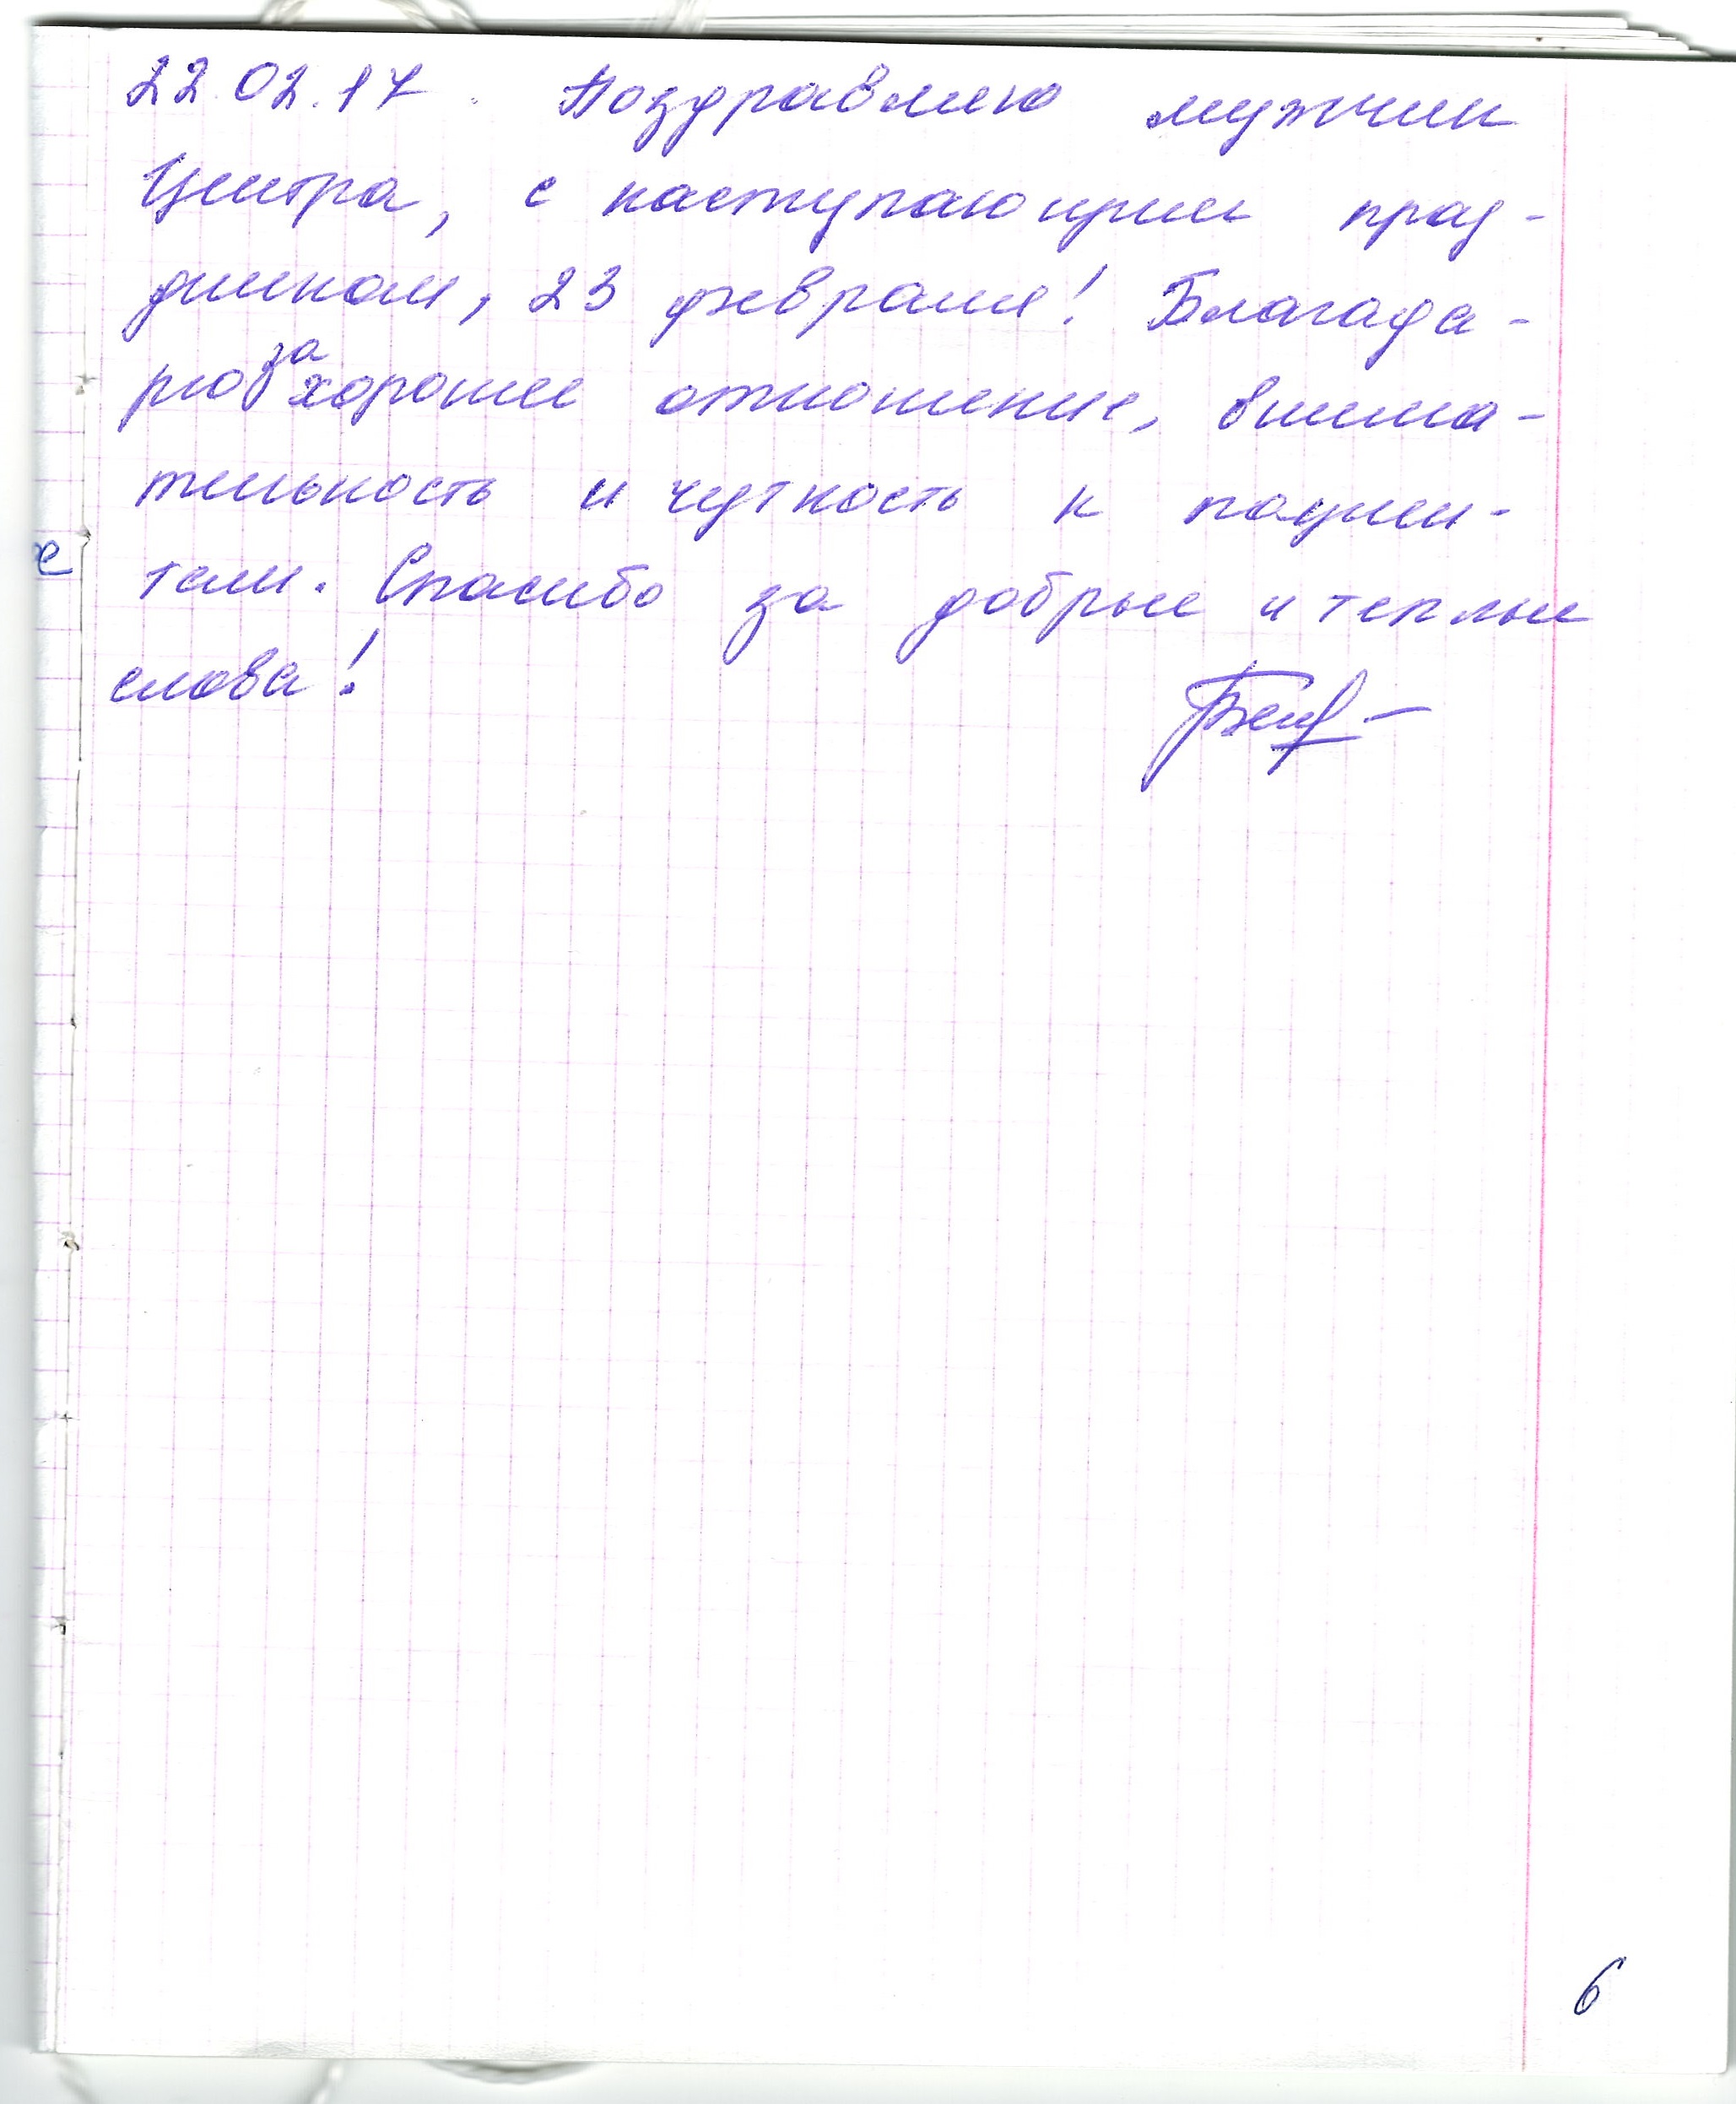 22.02.17. Поздравляю мужчин
Центра, с наступающим праз-
дником, 23 февраля! Благада-
рю за хорошее отношение, внима-
тельность и чуткость к пациен-
там. Спасибо за добрые и теплые
слова!
6